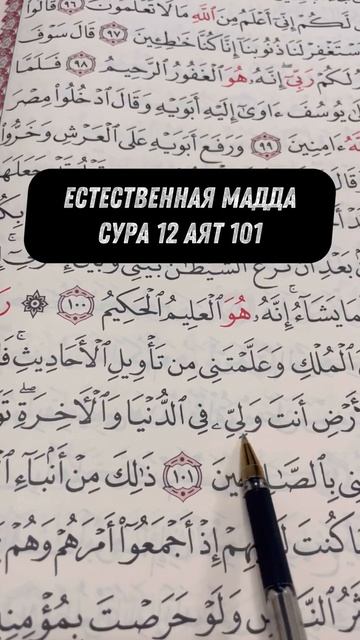 لَكُمْ إِنِّىٓ أَعْلَمُ مِنَ ٱللَّهِ مَا لَا تَعْلَمُونَ ٩٦ قَالُوا۟
ٱسْتَغْفِرْ لَنَا ذُنُوبَنَآ إِنَّا كُنَّا خَـٰطِـِٔينَ ٩٧ قَالَ سَوْفَ
لَكُمْ رَبِّىٓ إِنَّهُۥ هُوَ ٱلْغَفُورُ ٱلرَّحِيمُ ٩٨ فَلَمَّا
يُوسُفَ ءَاوَىٰٓ إِلَيْهِ أَبَوَيْهِ وَقَالَ ٱدْخُلُوا۟ مِصْرَ
ءَامِنِينَ ٩٩ وَرَفَعَ أَبَوَيْهِ عَلَى ٱلْعَرْشِ وَخَرُّوا۟
ЕСТЕСТВЕННАЯ МАДДА
СУРА 12 АЯТ 101
يَشَآءُ إِنَّهُۥ هُوَ ٱلْعَلِيمُ ٱلْحَكِيمُ ١٠٠
ٱلْمُلْكِ وَعَلَّمْتَنِى مِن تَأْوِيلِ ٱلْأَحَادِيثِ
أَنتَ وَلِىِّۦ فِى ٱلدُّنْيَا وَٱلْـَٔاخِرَةِ
بِٱلصَّـٰلِحِينَ ١٠١ ذَٰلِكَ مِنْ أَنۢبَآءِ
كُنتَ لَدَيْهِمْ إِذْ أَجْمَعُوٓا۟ أَمْرَهُمْ وَهُمْ
وَلَوْ حَرَصْتَ بِمُؤْمِنِينَ